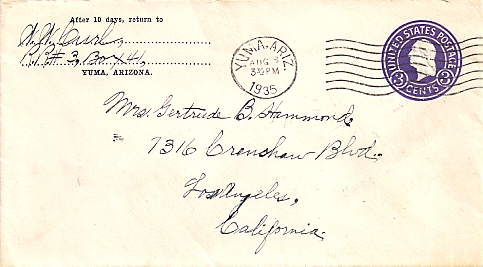 After 10 days, return to
R.F.D. # 3, Box 41,
YUMA, ARIZONA.
YUMA, ARIZ.
AUG
3 30 PM
1935
UNITED STATES POSTAGE
3 3
CENTS
Mrs. Gertrude B. Hammond,
7316 Crenshaw Blvd.
Los Angeles,
California.